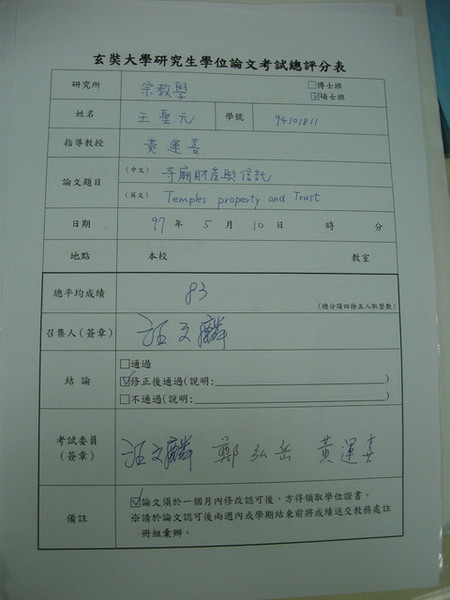 玄奘大學研究生學位論文考試總評分表
研究所 宗教學 □博士班
☑碩士班
姓名 王聖元 學號 94101811
指導教授 黃運喜
論文題目 (中文) 寺廟財產與信託
(英文) Temples property and Trust
日期 97 年 5 月 10 日 時 分
地點 本校 教室
總平均成績 83 (總分請四捨五入取整數)
召集人(簽章) 汪文麟
結論 □通過
☑修正後通過(說明:)
□不通過(說明:)
考試委員 汪文麟 鄭弘岳 黃運喜
(簽章)
備註 ☑論文須於一個月內修改認可後,方得領取學位證書。
※請於論文認可後兩週內或學期結束前將成績送交教務處註
冊組彙辦。